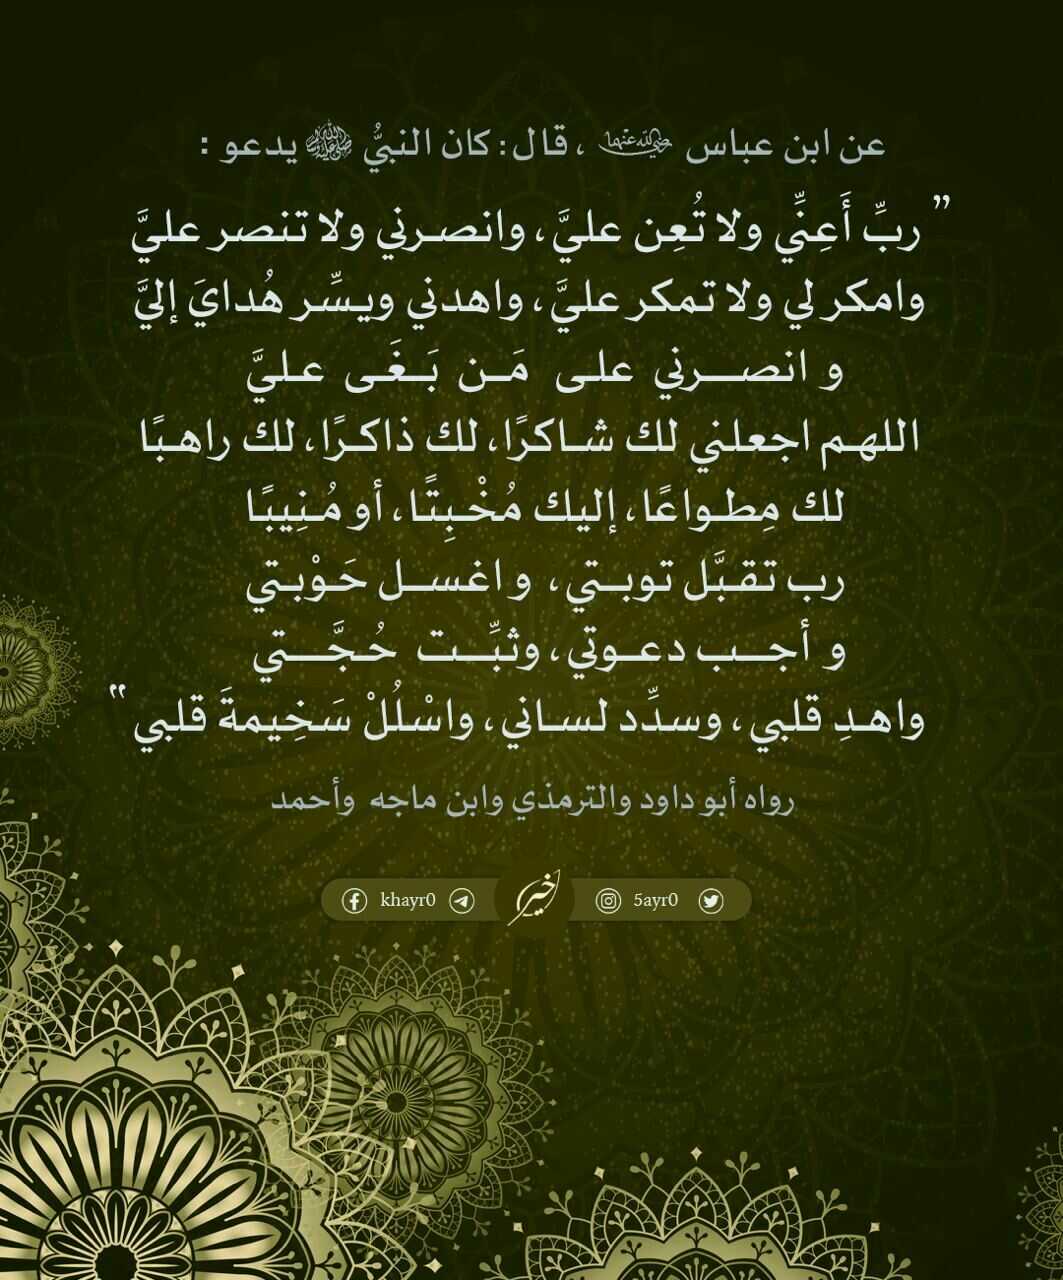 عن ابن عباس رضي الله عنهما ، قال: كان النبيُّ ﷺ يدعو :
” ربِّ أَعِنِّي ولا تُعِن عليَّ، وانصرني ولا تنصر عليَّ
وامكر لي ولا تمكر عليَّ، واهدني ويسِّر هُدايَ إليَّ
و انصرني على مَن بَغَى عليَّ
اللهم اجعلني لك شاكرًا، لك ذاكرًا، لك راهبًا
لك مِطواعًا، إليك مُخْبِتًا، أو مُنِيبًا
رب تقبَّل توبتي، واغسل حَوْبتي
و أجب دعوتي، وثبِّت حُجَّتي
واهدِ قلبي، وسدِّد لساني، واسْلُلْ سَخِيمةَ قلبي ”
رواه أبو داود والترمذي وابن ماجه وأحمد
khayr0 خير 5ayr0